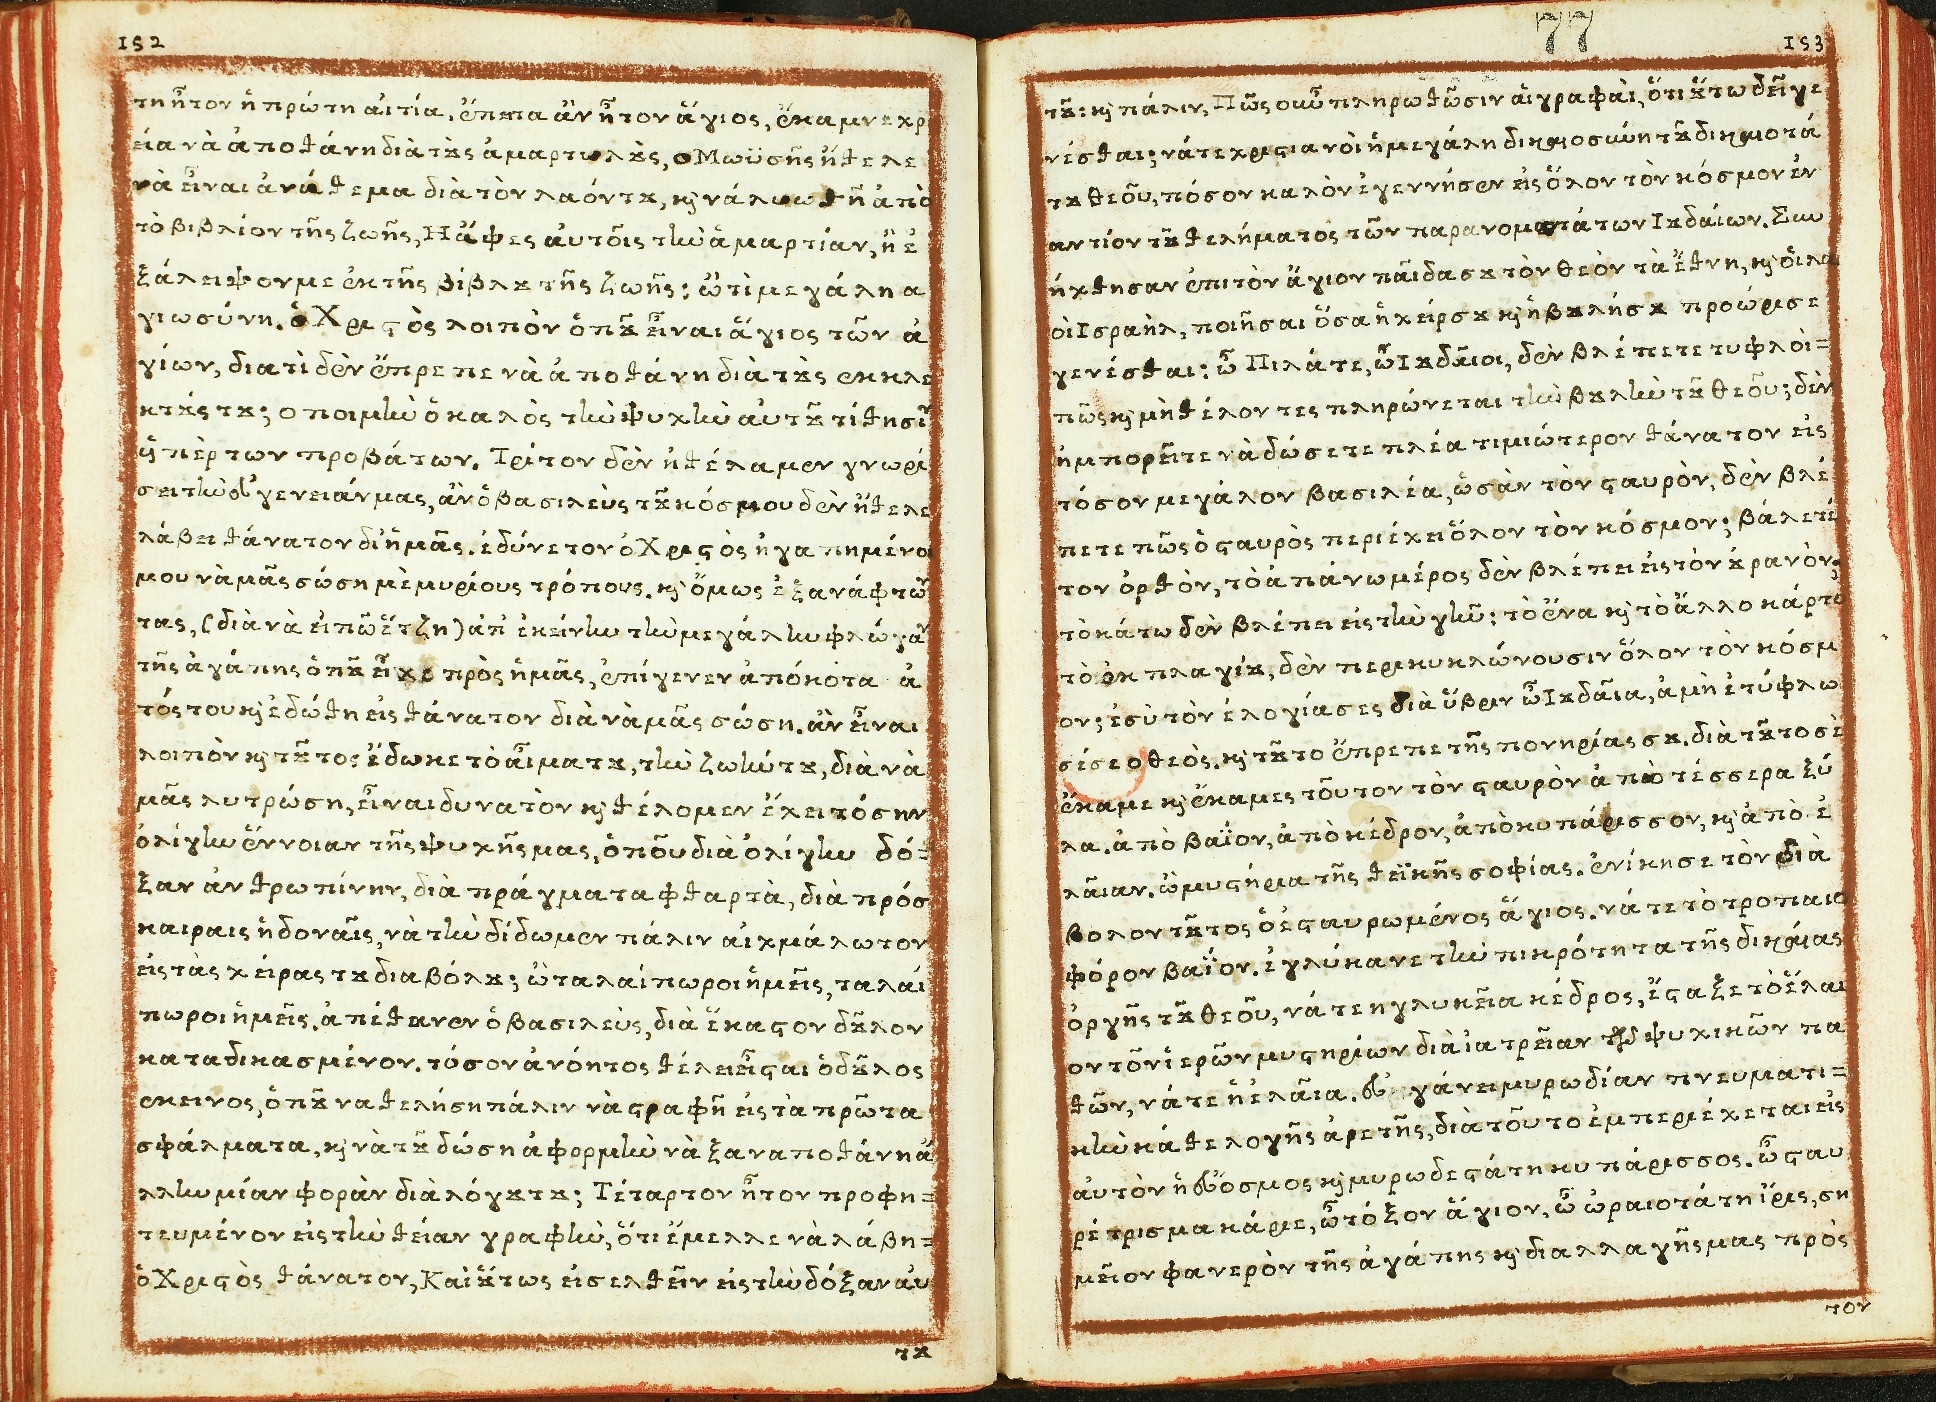 152
τη ἦτον ἡ πρώτη αἰτία. ἔπειτα ἂν ἦτον ἅγιος, ἔκαμνε χρ
εία νὰ ἀποθάνη διὰ τȣς ἁμαρτωλȣς, ο Μωϋσῆς ἤθελε
νὰ εἶναι ἀνάθεμα διὰ τὸν λαόν τȣ, κ̀ νάλειωθῆ ἀπὸ
τὸ βιβλίον τῆς ζωῆς, Η ἄφες αὐτοῖς τὴν ἁμαρτίαν, ἢ ἐ
ξάλειψον με ἐκ τῆς βίβλȣ τῆς ζωῆς; ὢ τὶ μεγάλη α
γιωσύνη. ὁ Χριςὸς λοιπὸν ὁπȣ εἶναι ἅγιος τῶν ἁ
γίων, διατὶ δὲν ἔπρεπε νὰ ἀποθάνη διὰ τȣς εκκλε
κτȣς τȣ; ο ποιμὴν ὁ καλὸς τὴν ψυχὴν αὐτȣ τίθησιν
ὑπὲρ των προβάτων. Τρίτον δὲν ἠθέλαμεν γνωρί
σει τὴν εὐγενειάν μας, ἀν ὁ βασιλεὺς τȣ κόσμου δὲν ἤθελε
λάβει θάνατον δι' ἡμᾶς. ἐδύνετον ὁ Χριςὸς ἠγαπημένοι
μου νὰ μᾶς σώση μὲ μυρίους τρόπους. κ̀ ὅμως ἐξανάφτων
τας, (διὰ νὰ εἰπῶ ἔτζη) ἀπ' ἐκείνην τὴν μεγάλην φλώγαν
τῆς ἀγάπης ὁπȣ εἶχε πρὸς ἡμᾶς, ἐπίγενεν ἀπόκοτα ἀ
τός του κ̀ ἐδώθη εἰς θάνατον διὰ νὰ μᾶς σώση. ἀν εἶναι
λοιπὸν κ̀ τȣτος ἔδωκε τὸ αἷμα τȣ, τὴν ζωήν τȣ, διὰ νὰ
μᾶς λυτρώση, εἶναι δυνατὸν κ̀ θέλομεν ἔχει τόσην
ὀλίγην ἔννοιαν τῆς ψυχῆς μας, ὁποῦ διὰ ὀλίγην δό=
ξαν ἀνθρωπίνην, διὰ πράγματα φθαρτὰ, διὰ πρόσ
καιραις ἡδοναῖς, νὰ τὴν δίδωμεν πάλιν αἰχμάλωτον
εἰς τὰς χεῖρας τȣ διαβόλȣ; ὢ ταλαίπωροι ἡμεῖς, ταλαί
πωροι ἡμεῖς. ἀπέθανεν ὁ βασιλεὺς, διὰ ἕκαςον δȣλον
καταδικασμένον. τόσον ἀνόητος θέλει εἶςαι ὁ δȣλος
εκεινος, ὁπȣ να θελήση πάλιν νὰ ςραφῆ εἰς τὰ πρῶτα
σφάλματα, κ̀ νὰ τȣ δώση ἀφορμὴν νὰ ξαναποθάνη ἄ
λλην μίαν φορὰν διὰ λόγȣ τȣ; Τέταρτον ἦτον προφη=
τευμένον εἰς τὴν θείαν γραφὴν, ὅτι ἔμελλε νὰ λάβη=
ὁ Χριςὸς θάνατον, Καὶ ȣτως εἰσελθεῖν εἰς τὴν δόξαν αὐ
τȣ
77
153
τȣ: κ̀ πάλιν, Πῶς οὖν πληρωθῶσιν αἱ γραφαὶ, ὅτι ȣτω δεῖ γε
νέσθαι; νάτε χριςιανοὶ ἡ μεγάλη δικαιοσύνη τȣ δικαιοτά
τȣ θεοῦ, πόσον καλὸν ἐγεννήσεν εἰς ὅλον τὸν κόσμον ἐν
αντίον τȣ θελήματος τῶν παρανομωτάτων Ιȣδαίων. Συν
ήχθησαν ἐπι τὸν ἅγιον παῖδα σȣ τὸν θεὸν τὰ ἔθνη, κ̀ ὁι λα
οὶ Ισραὴλ, ποιῆσαι ὅσα ἡ χείρ σȣ κ̀ ἡ βȣλή σȣ προώρισε
γενέσθαι: ὦ Πιλάτε, ὦ Ιȣδαῖοι, δὲν βλέπετε τυφλοὶ=
πῶς κ̀ μὴ θέλοντες πληρώνεται τὴν βȣλὴν τȣ θεοῦ; δὲν
ἡμπορεῖτε νὰ δώσετε πλέα τιμιώτερον θάνατον εἰς
τόσον μεγάλον βασιλέα, ὡσὰν τὸν ςαυρὸν, δὲν βλέ
πετε πῶς ὁ ςαυρὸς περιέχει ὅλον τὸν κόσμον; βάλετέ
τον ὀρθὸν, τὸ ἀπάνω μέρος δὲν βλέπει εἰς τὸν ȣρανὸν;
τὸ κάτω δὲν βλέπει εἰς τὴν γῆν; τὸ ἕνα κ̀ τὸ ἄλλο κάρτο
τὸ ἐκ πλαγίȣ, δὲν περικυκλώνουσιν ὅλον τὸν κόσμ
ον; ἐσὺ τὸν ἐλογίασες διὰ ὕβριν ὦ Ιȣδαῖα, ἀμὴ ἐτύφλω
σέ σε ο θεὸς. κ̀ τȣτο ἔπρεπε τῆς πονηρίας σȣ. διὰ τȣτο σὲ
ἔκαμε κ̀ ἔκαμες τοῦτον τὸν ςαυρὸν ἀπὸ τέσσερα ξύ
λα. ἀπὸ βαΐον, ἀπὸ κέδρον, ἀπὸ κυπάρισσον, κ̀ ἀπὸ ἐ
λαῖαν. ὢ μυςήρια τῆς θεϊκῆς σοφίας. ἐνίκησε τὸν διὰ
βολον τȣτος ὁ ἐςαυρωμένος ἅγιος. νάτε τὸ τροπαιο
φόρον βαΐον. ἐγλύκανε τὴν πικρότητα τῆς δικαίας
ὀργῆς τȣ θεοῦ, νάτε η γλυκεῖα κέδρος, ἔςαξε τὸ ἔλαι
ον τῶν ἱερῶν μυςηρίων διὰ ἰατρεῖαν τῶν ψυχικῶν πα
θῶν, νάτε ἡ ἐλαῖα. εὐγάνει μυρωδίαν πνευματι=
κὴν κάθε λογῆς ἀρετῆς, διὰ τοῦτο ἐμπεριέχεται εἰς
αὐτὸν ἡ εὔοσμος κ̀ μυρωδεςάτη κυπάρισσος. ὦ ςαυ
ρέ τρισμακάριε, ὦ τόξον ἅγιον, ὦ ὡραιοτάτη ἶρις, ση
μεῖον φανερὸν τῆς ἀγάπης κ̀ διαλλαγῆς μας πρὸς
τον